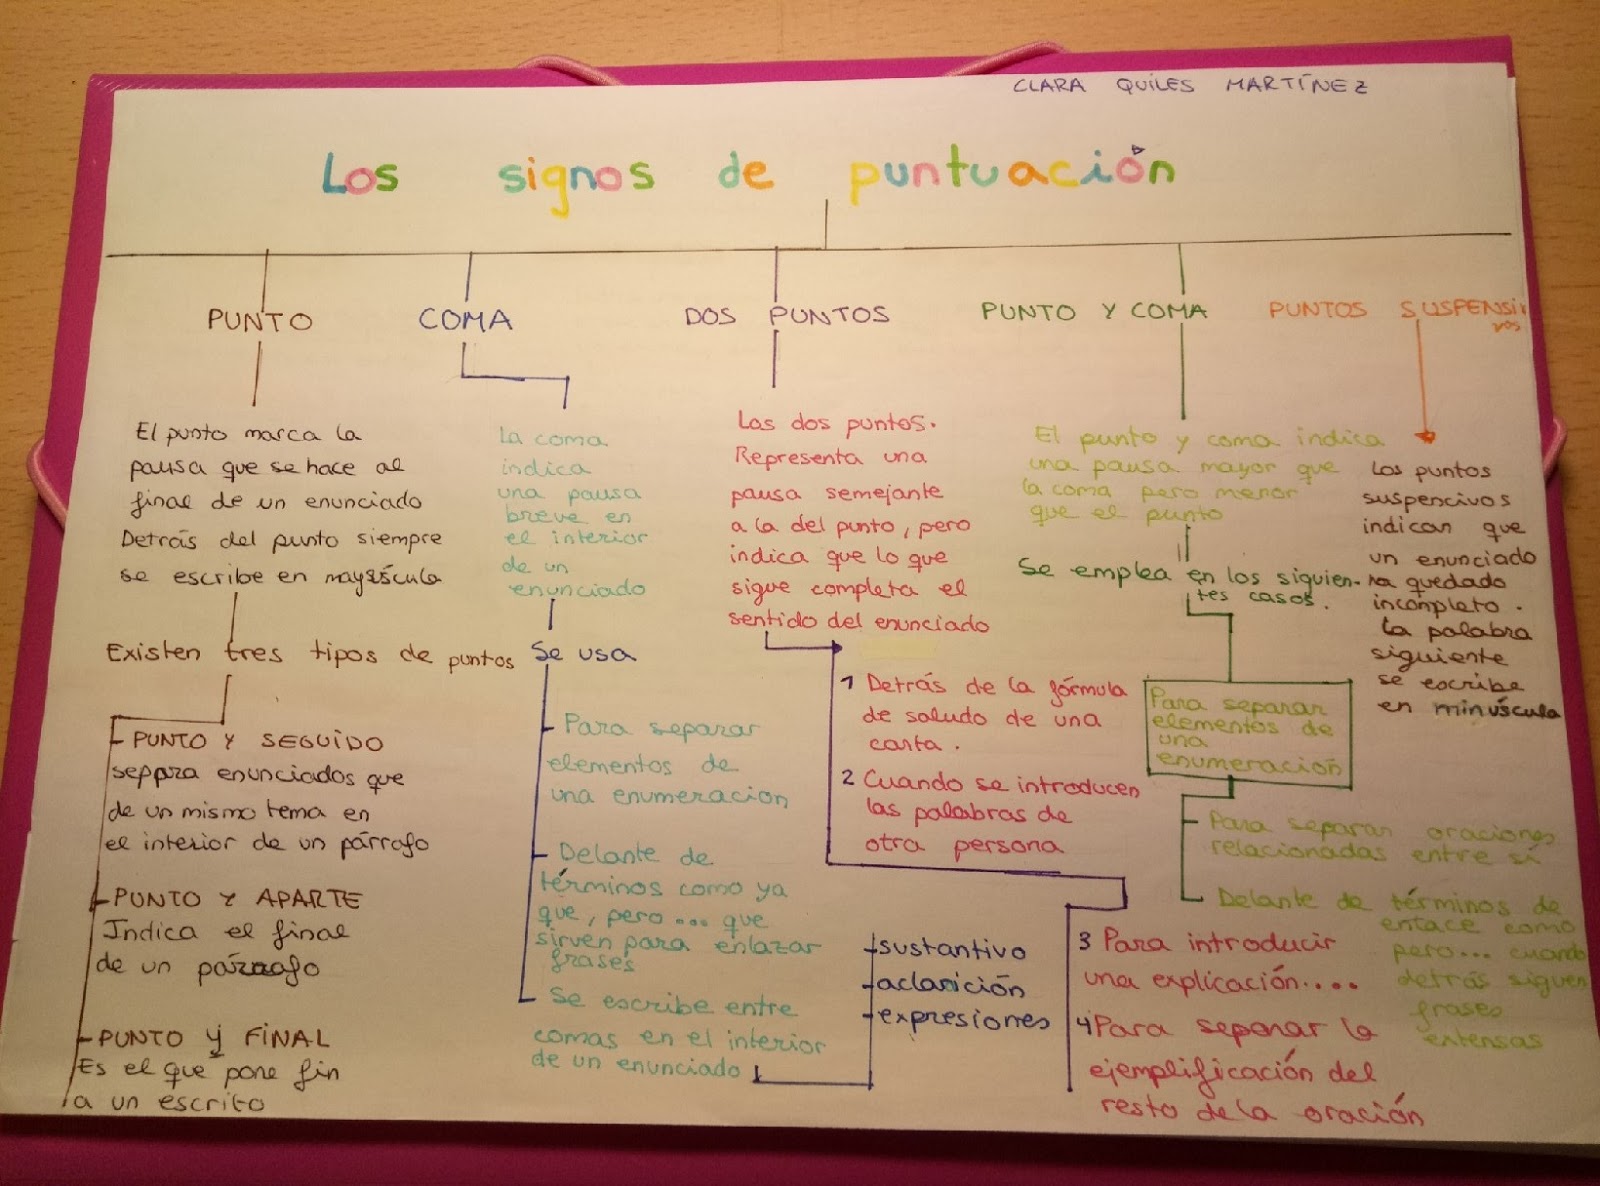 CLARA QUILES MARTÍNEZ
Los signos de puntuación
PUNTO
El punto marca la
pausa que se hace al
final de un enunciado
Detrás del punto siempre
se escribe en mayúscula
Existen tres tipos de puntos
PUNTO Y SEGUIDO
seppra enunciados que
de un mismo tema en
el interior de un párrafo
PUNTO Y APARTE
Indica el final
de un párrafo
PUNTO y FINAL
Es el que pone fin
a un escrito
COMA
La coma
indica
una pausa
breve en
el interior
de un
enunciado
Se usa
Para separar
elementos de
una enumeracion
Delante de
términos como ya
que, pero... que
sirven para enlazar
frases
Se escribe entre
comas en el interior
de un enunciado
sustantivo
aclarición
expresiones
DOS PUNTOS
Los dos puntos.
Representa una
pausa semejante
a la del punto, pero
indica que lo que
sigue completa el
sentido del enunciado
1 Detrás de la fórmula
de saludo de una
carta.
2 Cuando se introducen
las palabras de
otra persona
3 Para introducir
una explicación....
4 Para separar la
ejemplificación del
resto de la oración
PUNTO Y COMA
El punto y coma indica
una pausa mayor que
la coma pero menor
que el punto
Se emplea en los siguien-
tes casos.
Para separar
elementos de
una
enumeración
Para separar oraciones
relacionadas entre sí
Delante de términos de
entace como
pero... cuando
detrás siguen
frases
extensas
PUNTOS SUSPENSI
vos
Los puntos
suspencivos
indican que
un enunciado
ha quedado
inconpleto.
la palabra
siguiente
se escribe
en minúscula